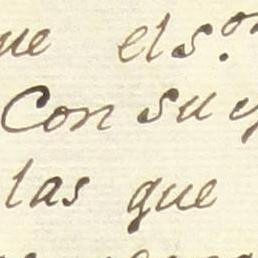 ue el s.or
Con su
las que